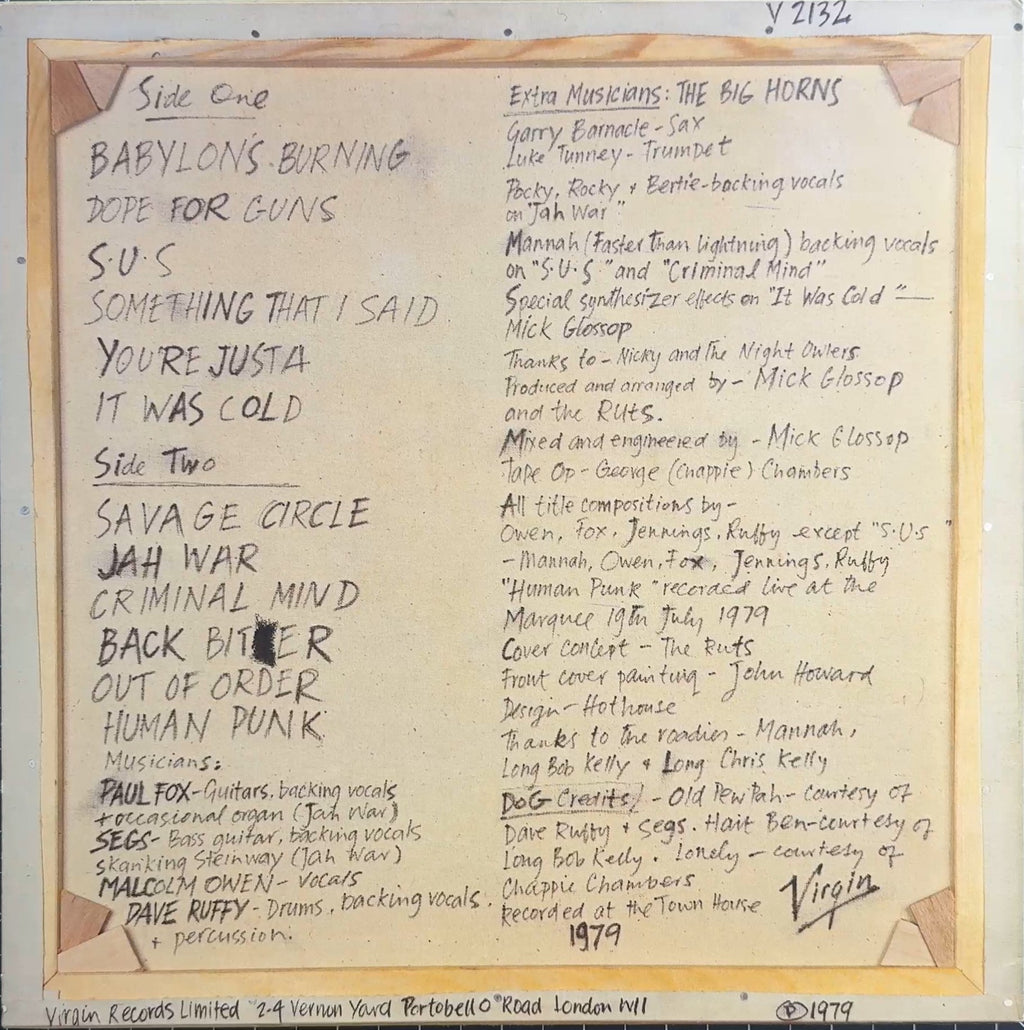 V 2132
Side One
BABYLON'S BURNING
DOPE FOR GUNS
S.U.S
SOMETHING THAT I SAID
YOU'RE JUST A
IT WAS COLD
Side Two
SAVAGE CIRCLE
JAH WAR
CRIMINAL MIND
BACK BITER
OUT OF ORDER
HUMAN PUNK
Musicians:
PAUL FOX-Guitars, backing vocals
+ occasional organ (Jah War)
SEGS- Bass guitar, backing vocals
skanking Steinway (Jah War)
MALCOLM OWEN - vocals
DAVE RUFFY - Drums, backing vocals.
+ percussion.
Extra Musicians: THE BIG HORNS
Garry Barnacle - Sax
Luke Tunney - Trumpet
Pocky, Rocky + Bertie-backing vocals
on "Jah War"
Mannah (Faster than lightning) backing vocals
on "S.U.S." and "Criminal Mind"
Special synthesizer effects on "It Was Cold" —
Mick Glossop
Thanks to - Nicky and The Night Owlers
Produced and arranged by - Mick Glossop
and the Ruts.
Mixed and engineered by - Mick Glossop
Tape Op - George (Chappie) Chambers
All title compositions by -
Owen, Fox, Jennings, Ruffy except "S.U.S"
- Mannah, Owen, Fox, Jennings, Ruffy
"Human Punk" recorded live at the
Marquee 19th July 1979
Cover concept - The Ruts
Front cover painting - John Howard
Design - Hothouse
Thanks to the roadies - Mannah,
Long Bob Kelly + Long Chris Kelly
DOG Credits - Old Pew Pah - courtesy of
Dave Ruffy + Segs. Hait Ben-courtesy of
Long Bob Kelly. Lonely - courtesy of
Chappie Chambers
Recorded at the Town House
1979
Virgin
Virgin Records Limited 2-4 Vernon Yard Portobello Road London W11
Ⓟ 1979